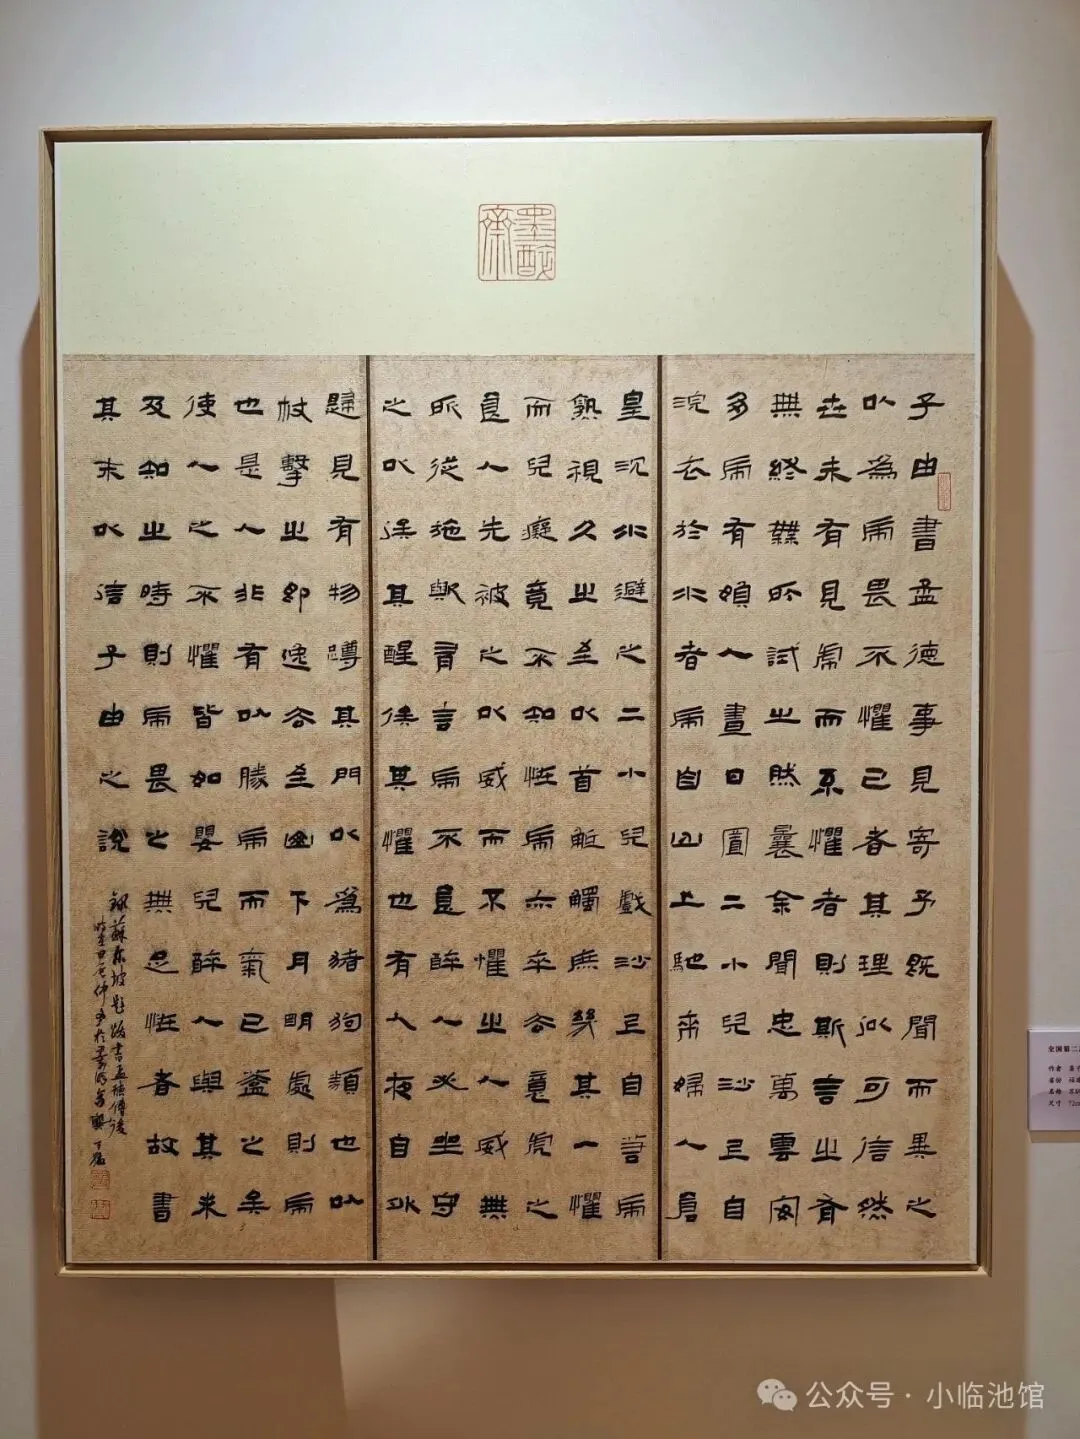 墨醉齋
子由書孟德事見寄予既聞而異之
以為虎畏不懼己者其理似可信然
世未有見虎而不懼者則斯言之有
無終無所試之然曩余聞忠萬雲安
多虎有婦人晝日置二小兒沙上自
浣衣於水者虎自山上馳來婦人倉
皇沉水避之二小兒戲沙上自若虎
熟視久之至以首觝觸庶幾其一懼
而兒癡竟不知怪虎亦卒去意虎之
食人先被之以威而不懼之人威無
所從施歟有言虎不食醉人必坐守
之以俟其醒俟其懼也有人夜自外
歸見有物蹲其門以為猪狗類也以
杖擊之即逸去至山下月明處則虎
也是人非有以勝虎而氣已蓋之矣
使人之不懼皆如嬰兒醉人與其未
及知之時則虎畏之無足怪者故書
其末以信子由之說
錄蘇東坡題跋書孟德傳後
全国第二
作者
省份 福建
名称
尺寸 72cm
公众号·小临池馆